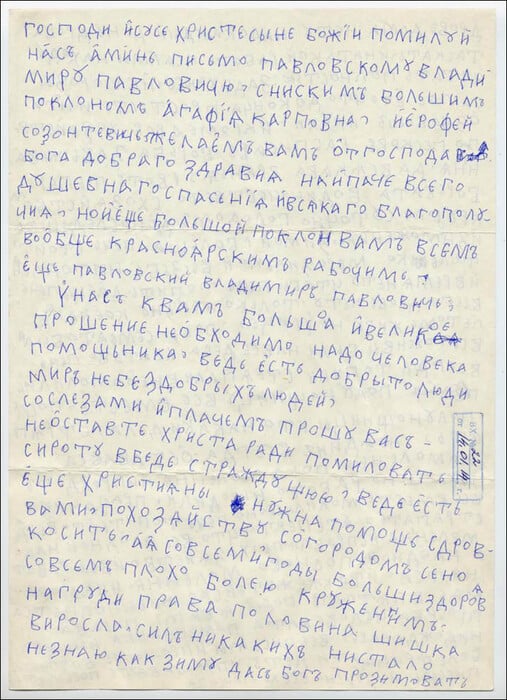 ГОСПОДИ ЙСУСЕ ХРИСТЕСЫНЕ БОЖІЙ ПОМИЛУЙ
НАСЪ АМИНЬ ПИСЬМО ПАВЛОВСКОМУ ВЛАДИ
МИРУ ПАВЛОВИЧЮ, СНИСКИМЪ БОЛЬШИМЪ
ПОКЛОНОМЪ АГАФІА КАРПОВНА, ЙЕРОФЕЙ
СОЗОНТЕВИЧЬ ЖЕЛАЕМЪ ВАМЪ ОТГОСПОДА
БОГА ДОБРАГО ЗДРАВИА НАЙПАЧЕ ВСЕГО
ДУШЕВНАГОСПАСЕНІА ЙВСАКАГО БЛАГОПОЛУ
ЧИА, НОЙЕЩЕ БОЛЬШОЙ ПОКЛОН ВАМЪ ВСЕМЪ
ВООБЩЕ КРАСНОАРСКИМЪ РАБОЧИМЪ,
ЕЩЕ ПАВЛОВСКИЙ ВЛАДИМИРЪ ПАВЛОВИЧЬ,
УНАСЪ КВАМЪ БОЛЬШОА ЙВЕЛИКОЕ
ПРОШЕНИЕ НЕОБХОДИМО НАДО ЧЕЛОВЕКА
ПОМОЩЬНИКА, ВЕДЕ ЕСТЬ ДОБРЫТО ЛЮДИ
МИРЪ НЕБЕЗДОБРЫХЪ ЛЮДЕЙ,
СОСЛЕЗАМИ ЙПЛАЧЕМЪ ПРОШУ ВАСЪ -
НЕОСТАВТЕ ХРИСТА РАДИ ПОМИЛОВАТЬ
СИРОТУ ВБЕДЕ СТРАЖДУЩЮЮ, ВЕДЕ ЕСТЬ
ЕЩЕ ХРИСТИАНЫ НУЖНА ПОМОЩЬ СДРОВ-
ВАМИ, ПОХОЗАЙСТВУ СОГОРОДОМЪ СЕНО
КОСИТЬ, АА СОВСЕМ ЙГОДЫ БОЛЬШИ ЗДОРОВА
СОВСЕМЪ ПЛОХО БОЛЕЮ КРУЖЕНИМЪ
НАГРУДИ ПРАВА ПОЛОВИНА ШИШКА
ВИРОСЛА, СИЛЪ НИКАКИХЪ НИСТАЛО
НЕЗНАЮ КАК ЗИМУ ДАСЬ БОГЪ ПРОЗИМОВАТЬ